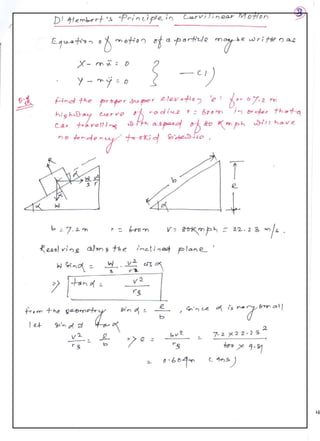 3
D'Alembert's Principle in Curvilinear Motion
Equation of motion of a particle may be written as
X - mẍ = 0
Y - mÿ = 0 } — (1)
Find the proper super elevation 'e' for a 7.2 m
highway curve of radius r = 600m in order that a
car travelling with a speed of 80 kmph will have
no tendency to skid sidewise.
b
e
α
W
α
b = 7.2m r = 600m V = 80kmph = 22.23 m/s.
Resolving along the inclined plane
W sinα = W/g · v²/r cosα
=> tanα = v²/rg
from the geometry sinα = e/b, since α is very small
let sinα ≅ tanα
v²/rg = e/b => e = bv²/rg = 7.2 x 22.23² / 600 x 9.81
= 0.604m (Ans)